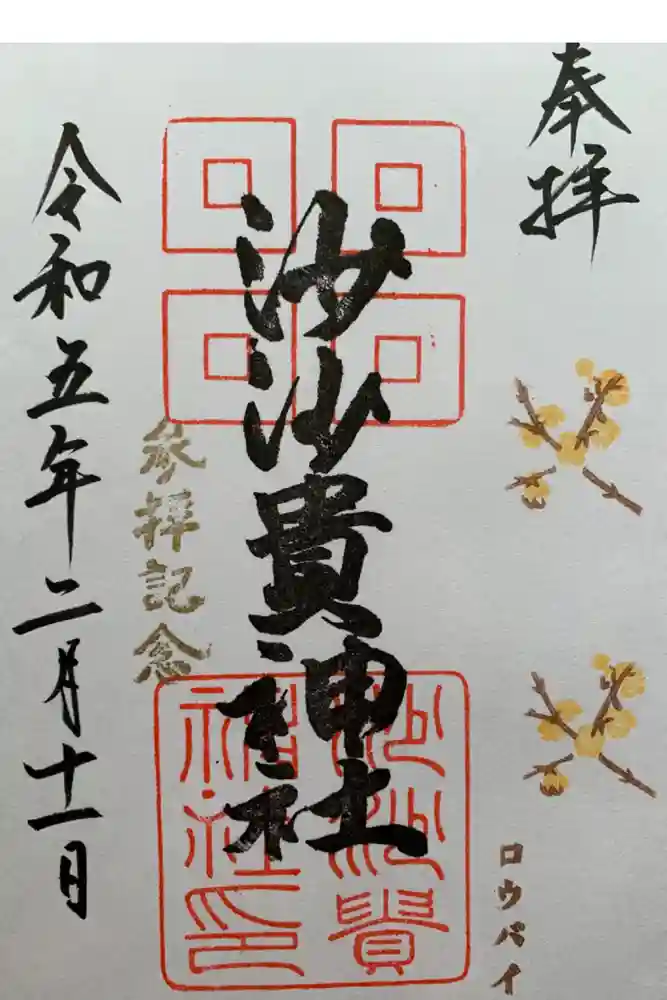 奉拝
ロウバイ
沙沙貴神社
沙沙貴神社印
参拝記念
令和五年二月十一日